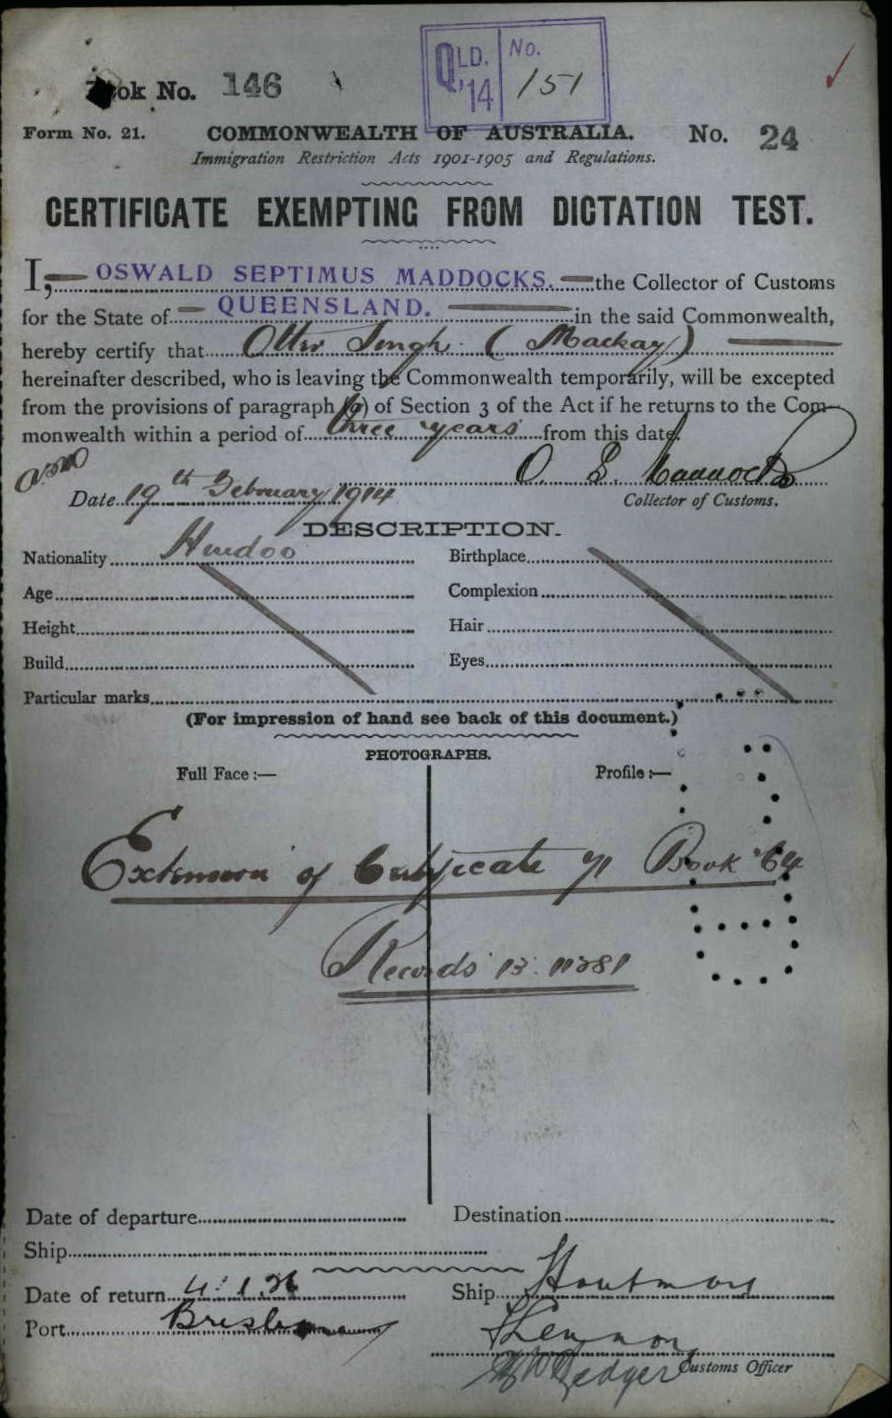 Book No. 146
QLD. '14 No. 151
Form No. 21. COMMONWEALTH OF AUSTRALIA. No. 24
Immigration Restriction Acts 1901-1905 and Regulations.
CERTIFICATE EXEMPTING FROM DICTATION TEST.
I, OSWALD SEPTIMUS MADDOCKS. the Collector of Customs
for the State of QUEENSLAND. in the said Commonwealth,
hereby certify that Singh (Mackay)
hereinafter described, who is leaving the Commonwealth temporarily, will be excepted
from the provisions of paragraph (a) of Section 3 of the Act if he returns to the Com-
monwealth within a period of three years from this date.
O. S. Maddocks
Date 19th February 1914 Collector of Customs.
DESCRIPTION.
Nationality Hindoo Birthplace
Age Complexion
Height Hair
Build Eyes
Particular marks
(For impression of hand see back of this document.)
PHOTOGRAPHS.
Full Face :— Profile :—
Extension of Certificate Book 64
Records 13.11281
Date of departure Destination
Ship
Date of return 4.1.26 Ship Houtman
Port Brisbane
Customs Officer